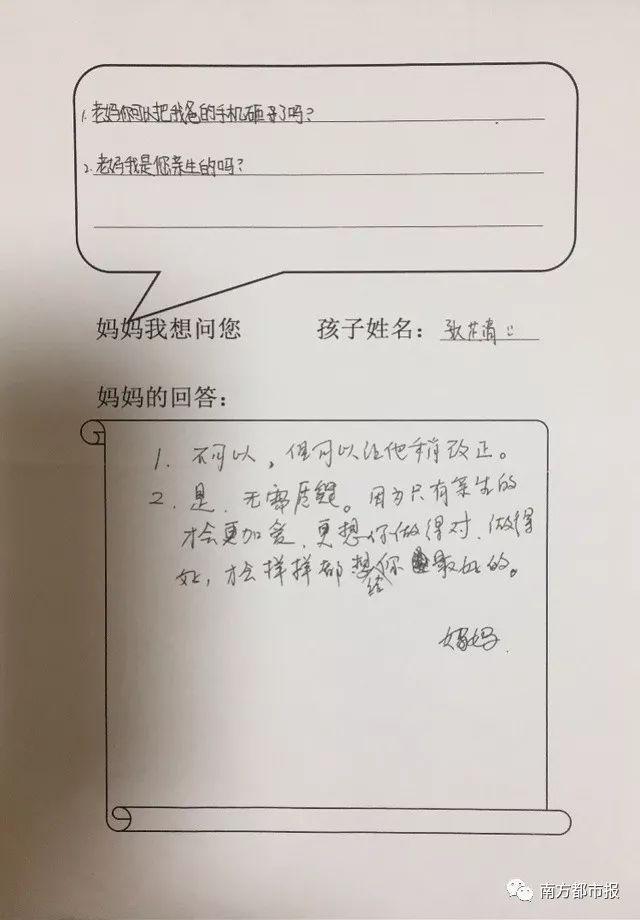 1.老妈你可以把我爸的手机砸了吗?
2.老妈我是您亲生的吗?
妈妈我想问您
孩子姓名:
妈妈的回答:
1. 不可以,但可以让他稍改正。
2. 是. 无需质疑。因为只有亲生的
才会更加爱,更想你做得对.做得
好,才会样样都想给你最好的。
妈妈.
南方都市报